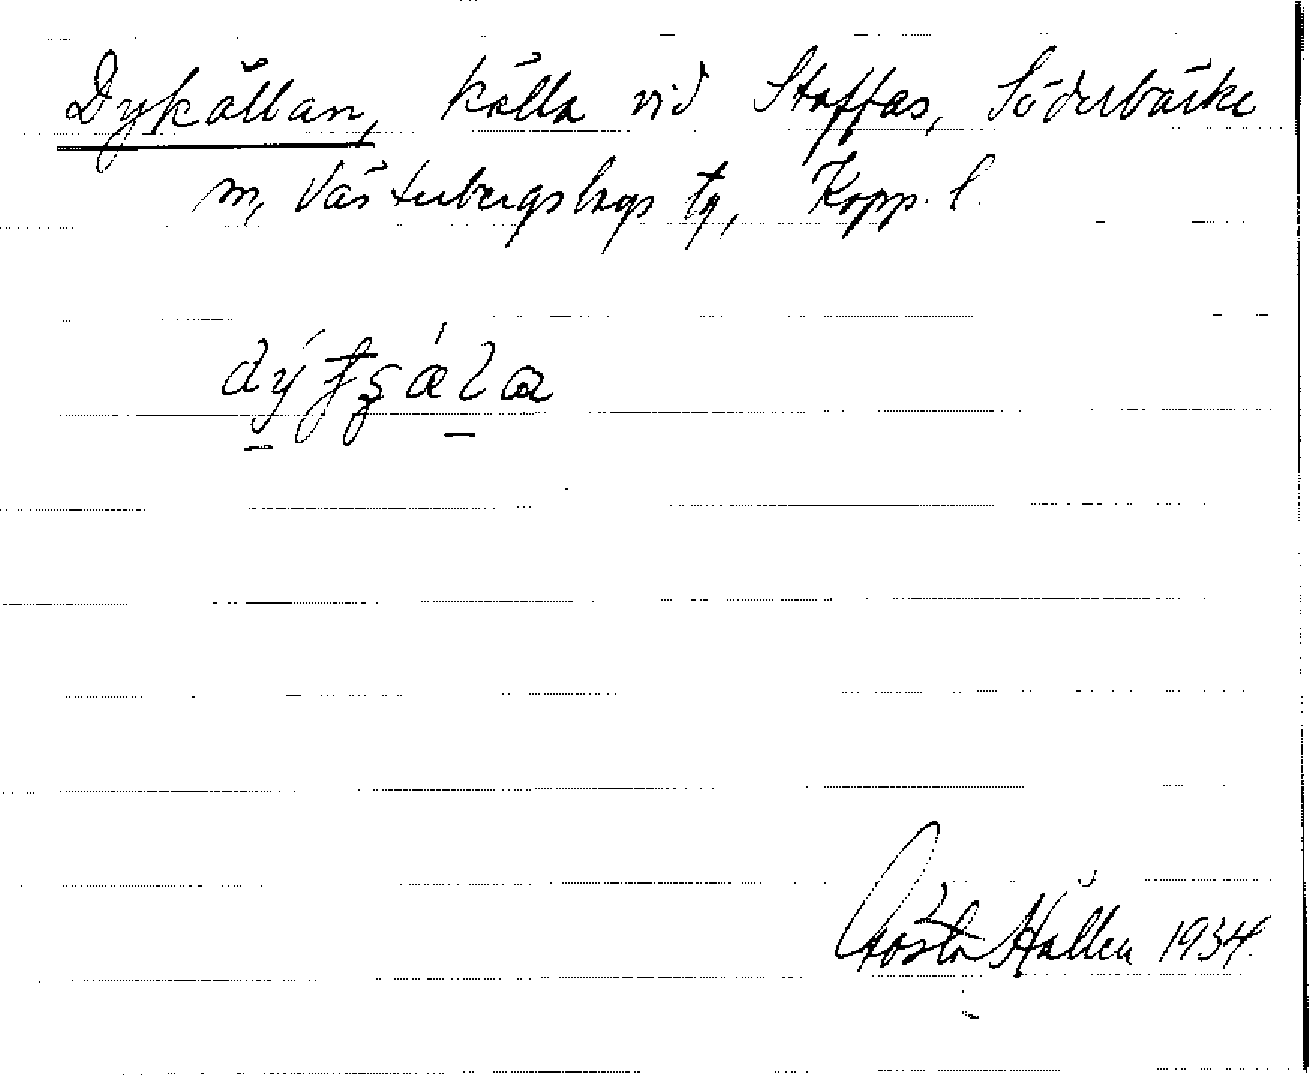 Dykällan, källa vid Staffas, Söderbärke
m, Västerbergslags tg, Kopp. l.
Gösta Hallén 1934.